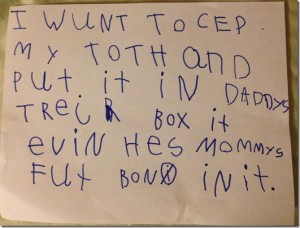 I WUNT TO CEP
MY TOTH AND
PUt it iN DADDYS
TREiR BOX it
EVIN HES MOMMYS
FUX BON IN iT.